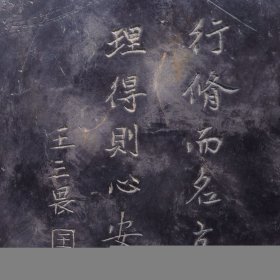 行脩而名立
理得則心安
王三畏